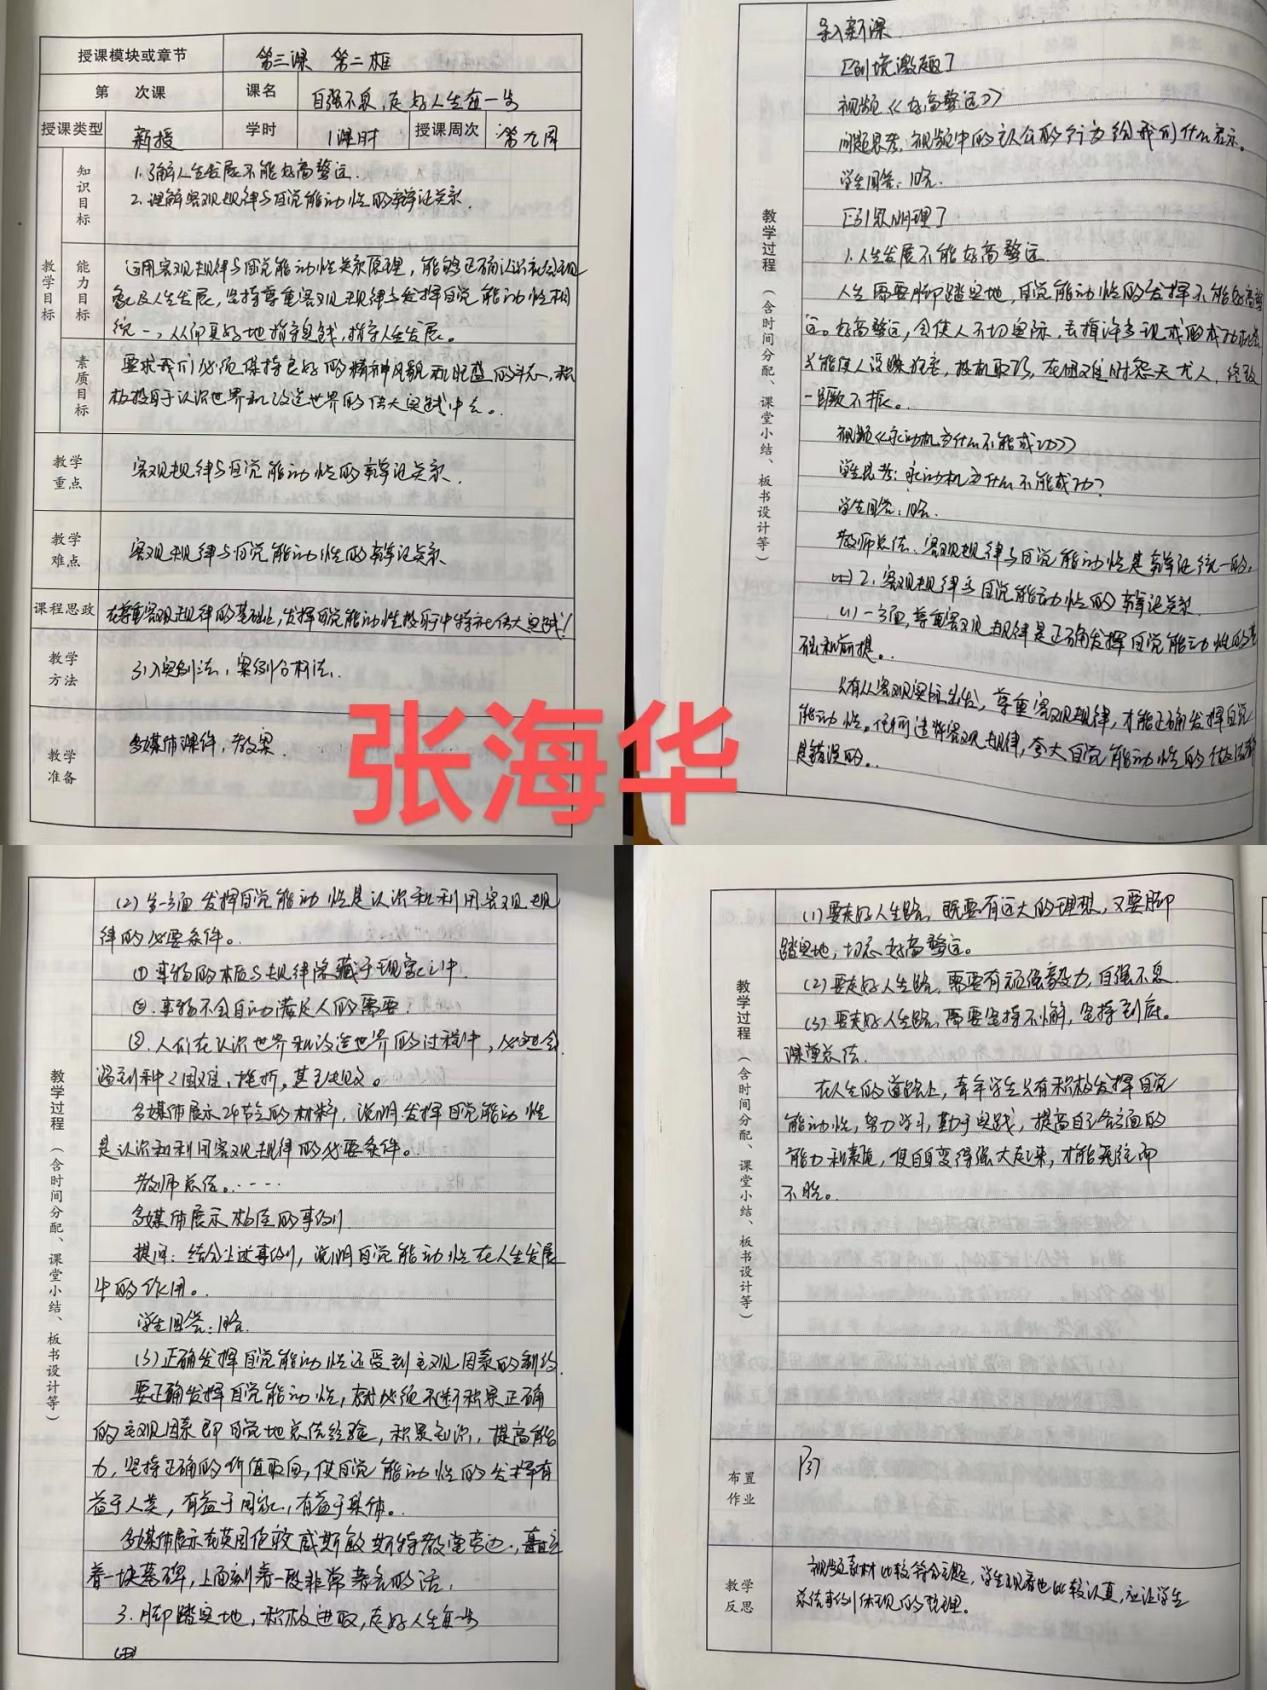 授课模块或章节 第三课 第二框
第 次课 课名 自强不息,走好人生每一步
授课类型 新授 学时 1课时 授课周次 第九周
教学目标
知识目标
1.了解人生发展不能好高骛远.
2.理解客观规律与自觉能动性的辩证关系.
能力目标
运用客观规律与自觉能动性关系原理,能够正确认识社会现
象及人生发展,坚持尊重客观规律与发挥自觉能动性相
统一,从而更好地指导实践,指导人生发展。
素质目标
要求我们必须保持良好的精神风貌和旺盛的斗志,积
极投身于认识世界和改造世界的伟大实践中去。
教学重点
客观规律与自觉能动性的辩证关系.
教学难点
客观规律与自觉能动性的辩证关系
课程思政
在尊重客观规律的基础上,发挥自觉能动性投身于中特社伟大实践!
教学方法
引入实例法,案例分析法.
教学准备
多媒体课件,教案.
张海华
教学过程(含时间分配、课堂小结、板书设计等)
导入新课
[创境激趣]
视频《好高骛远》
问题思考:视频中的主人公的行为给我们什么启示。
学生回答:略.
[引思明理]
1.人生发展不能好高骛远.
人生需要脚踏实地,自觉能动性的发挥不能好高骛
远。好高骛远,会使人不切实际,丢掉许多现成的成功机会
只能使人浮躁狂妄,投机取巧,在困难时怨天尤人,终致
一蹶不振。
视频《永动机为什么不能成功》
学生思考:永动机为什么不能成功?
学生回答:略.
教师总结:客观规律与自觉能动性是辩证统一的.
2.客观规律与自觉能动性的辩证关系.
(1)一方面,尊重客观规律是正确发挥自觉能动性的基
础和前提。
只有从客观实际出发,尊重客观规律,才能正确发挥自觉
能动性。任何违背客观规律,夸大自觉能动性的做法都
是错误的。
教学过程(含时间分配、课堂小结、板书设计等)
(2)另一方面 发挥自觉能动性是认识和利用客观规
律的必要条件。
①事物的本质与规律深藏于现象之中.
②.事物不会自动满足人的需要.
③.人们在认识世界和改造世界的过程中,必定会
遇到种种困难,挫折,甚至失败。
多媒体展示24节气的材料,说明发挥自觉能动性
是认识和利用客观规律的必要条件。
教师总结.·····
多媒体展示相应的事例
提问:结合上述事例,说明自觉能动性在人生发展
中的作用。
学生回答:略.
(3)正确发挥自觉能动性还受到主观因素的制约.
要正确发挥自觉能动性,就必须不断积累正确
的主观因素即自觉地总结经验,积累知识,提高能
力,坚持正确的价值取向,使自觉能动性的发挥有
益于人类,有益于国家,有益于集体。
多媒体展示在英国伦敦威斯敏斯特教堂旁边,矗立
着一块墓碑,上面刻着一段非常著名的话.
3.脚踏实地,积极进取,走好人生每一步
教学过程(含时间分配、课堂小结、板书设计等)
(1)要走好人生路,既要有远大的理想,又要脚
踏实地,切忌好高骛远。
(2)要走好人生路,需要有顽强毅力,自强不息.
(3)要走好人生路,需要坚持不懈,坚持到底。
课堂总结.
在人生的道路上,青年学生只有积极发挥自觉
能动性,努力学习,勤于实践,提高自己各方面的
能力和素质,使自身变得强大起来,才能无往而
不胜。
布置作业
P37
教学反思
视频素材比较符合主题,学生观看也比较认真,应让学生
总结事例体现的哲理。